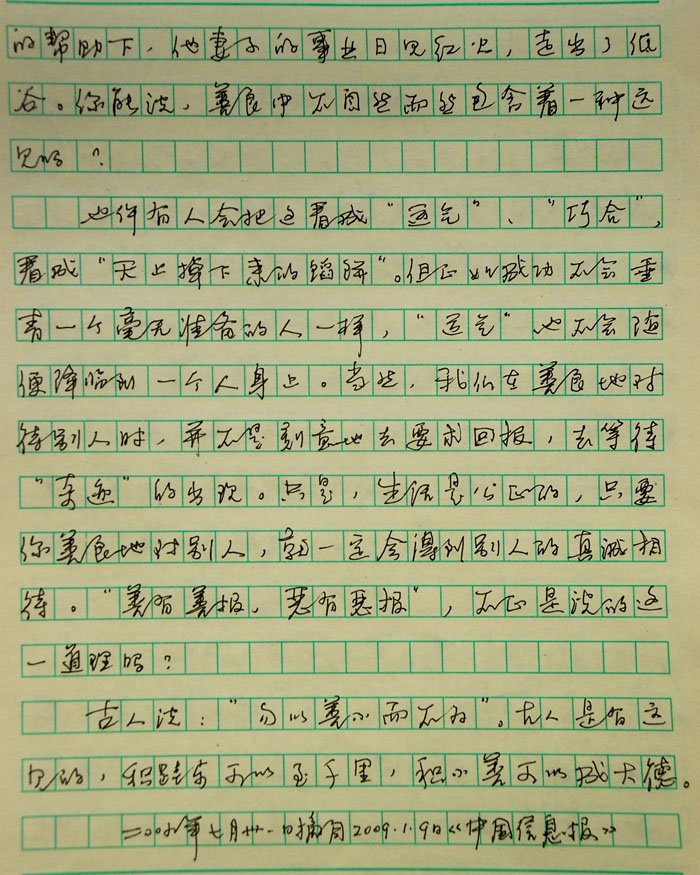 的帮助下，他妻子的事业日见红火，走出了低
谷。你能说，善良中不自然而然包含着一种远
见吗？
也许有人会把这看成“运气”、“巧合”，
看成“天上掉下来的馅饼”。但正如成功不会垂
青一个毫无准备的人一样，“运气”也不会随
便降临到一个人身上。当然，我们在善良地对
待别人时，并不是刻意地去要求回报，去等待
“奇迹”的出现。只是，生活是公正的，只要
你善良地对别人，就一定会得到别人的真诚相
待。“善有善报，恶有恶报”，不正是说的这
一道理吗？
古人说：“勿以善小而不为”。古人是有远
见的，积跬步可以至千里，积小善可以成大德。
年七月卅一日摘自2009.1.9日《中国信息报》